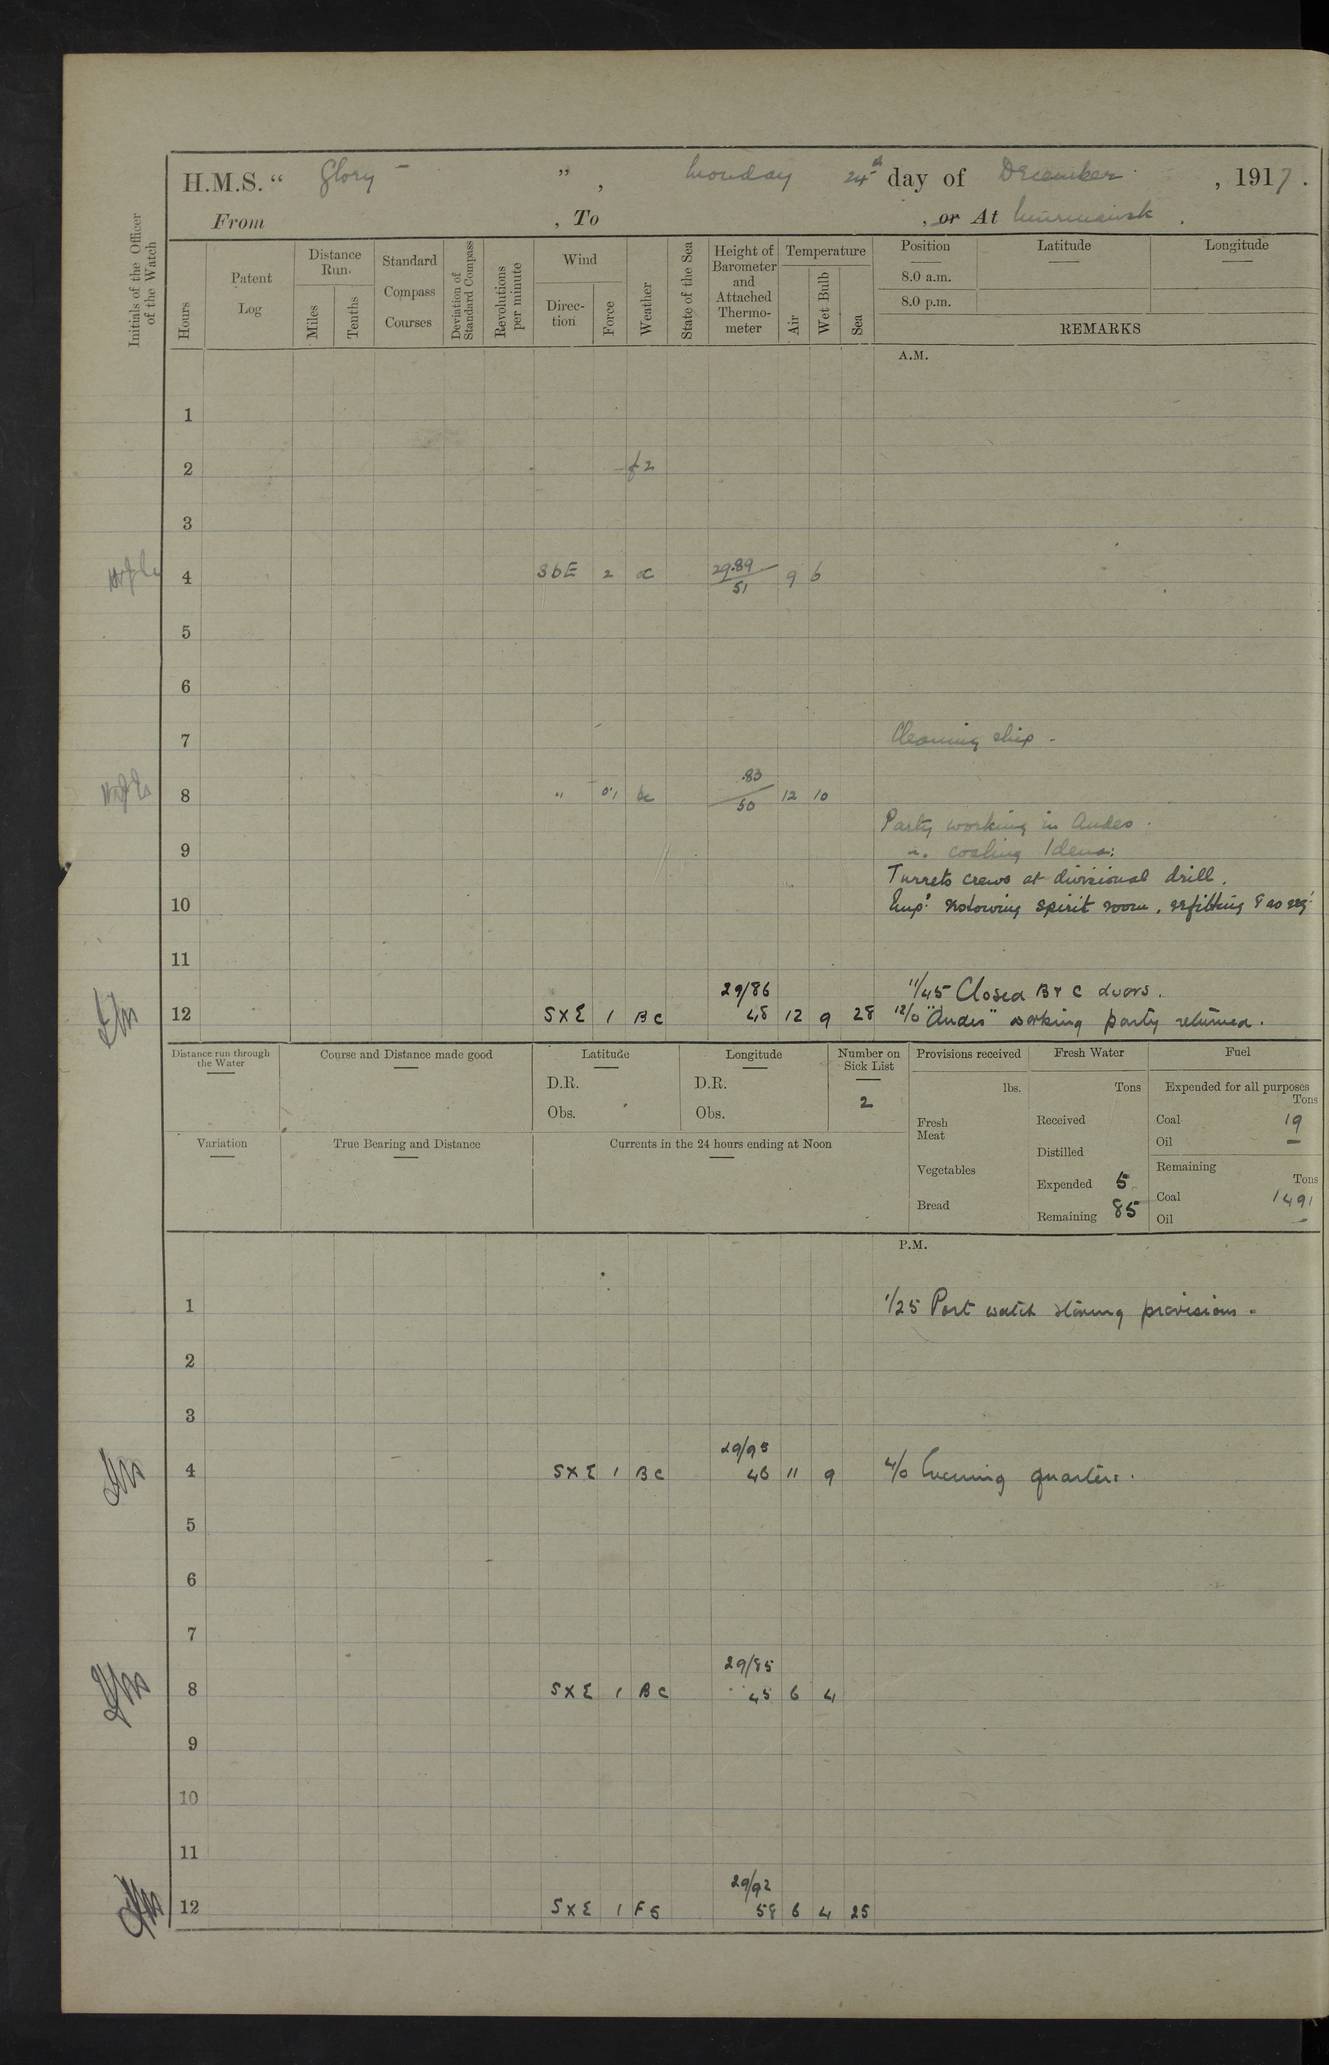 H.M.S. “ Glory ” , Monday 24th day of December , 1917 .
From , To , or At Murmansk .
Initials of the Officer of the Watch
Hours
Patent Log
Distance Run.
Miles
Tenths
Standard Compass Courses
Deviation of Standard Compass
Revolutions per minute
Wind
Direc-tion
Force
Weather
State of the Sea
Height of Barometer and Attached Thermo-meter
Temperature
Air
Wet Bulb
Sea
Position Latitude Longitude
8.0 a.m.
8.0 p.m.
REMARKS
A.M.
1
2 f2
3
4 SbE 2 29.89 51 9 6
5
6
7 Cleaning ship -
8 " 0.1 bc .83 50 12 10
Party working in Andes .
9 coaling Idena:
Turrets crews at divisional drill.
10 Emp: restowing spirit room, refitting
11
29/86 11/45 Closed B & C doors.
12 S X E 1 B C 48 12 9 28 12/0 "Andes" working party returned.
Distance run through the Water
Course and Distance made good
Latitude
D.R.
Obs.
Longitude
D.R.
Obs.
Number on Sick List
2
Provisions received
lbs.
Fresh Meat
Vegetables
Bread
Fresh Water
Tons
Received
Distilled
Expended 5
Remaining 85
Fuel
Expended for all purposes
Tons
Coal 19
Oil —
Remaining
Tons
Coal 1491
Oil —
Variation
True Bearing and Distance
Currents in the 24 hours ending at Noon
P.M.
1 1/25 Port watch storing provisions -
2
3
29/95
4 S X E 1 B C 46 11 9 4/0 Evening quarters.
5
6
7
29/85
8 S X E 1 B C 45 6 4
9
10
11
29/92
12 S X E 1 F S 58 6 4 25